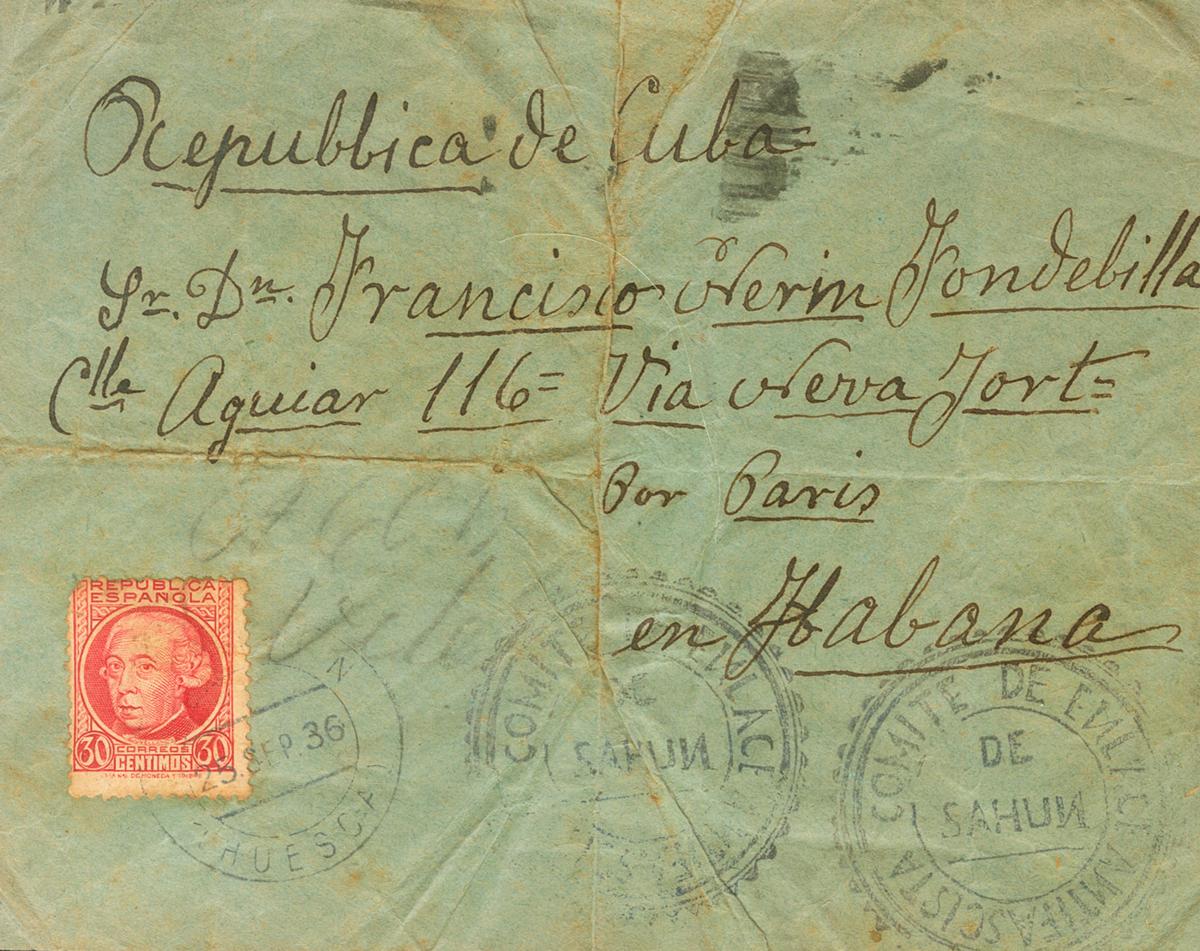 Republica de Cuba=
Sr. Dn. Francisco Nerin Fondebilla
Clle Aguiar 116= Via Neva Jort=
Por Paris
en Habana
REPÚBLICA
ESPAÑOLA
30 CORREOS 30
CENTIMOS
25 SEP 36
HUESCA
COMITE
SAHUN
COMITE DE MILICIA ANTIFASCISTA
DE
SAHUN